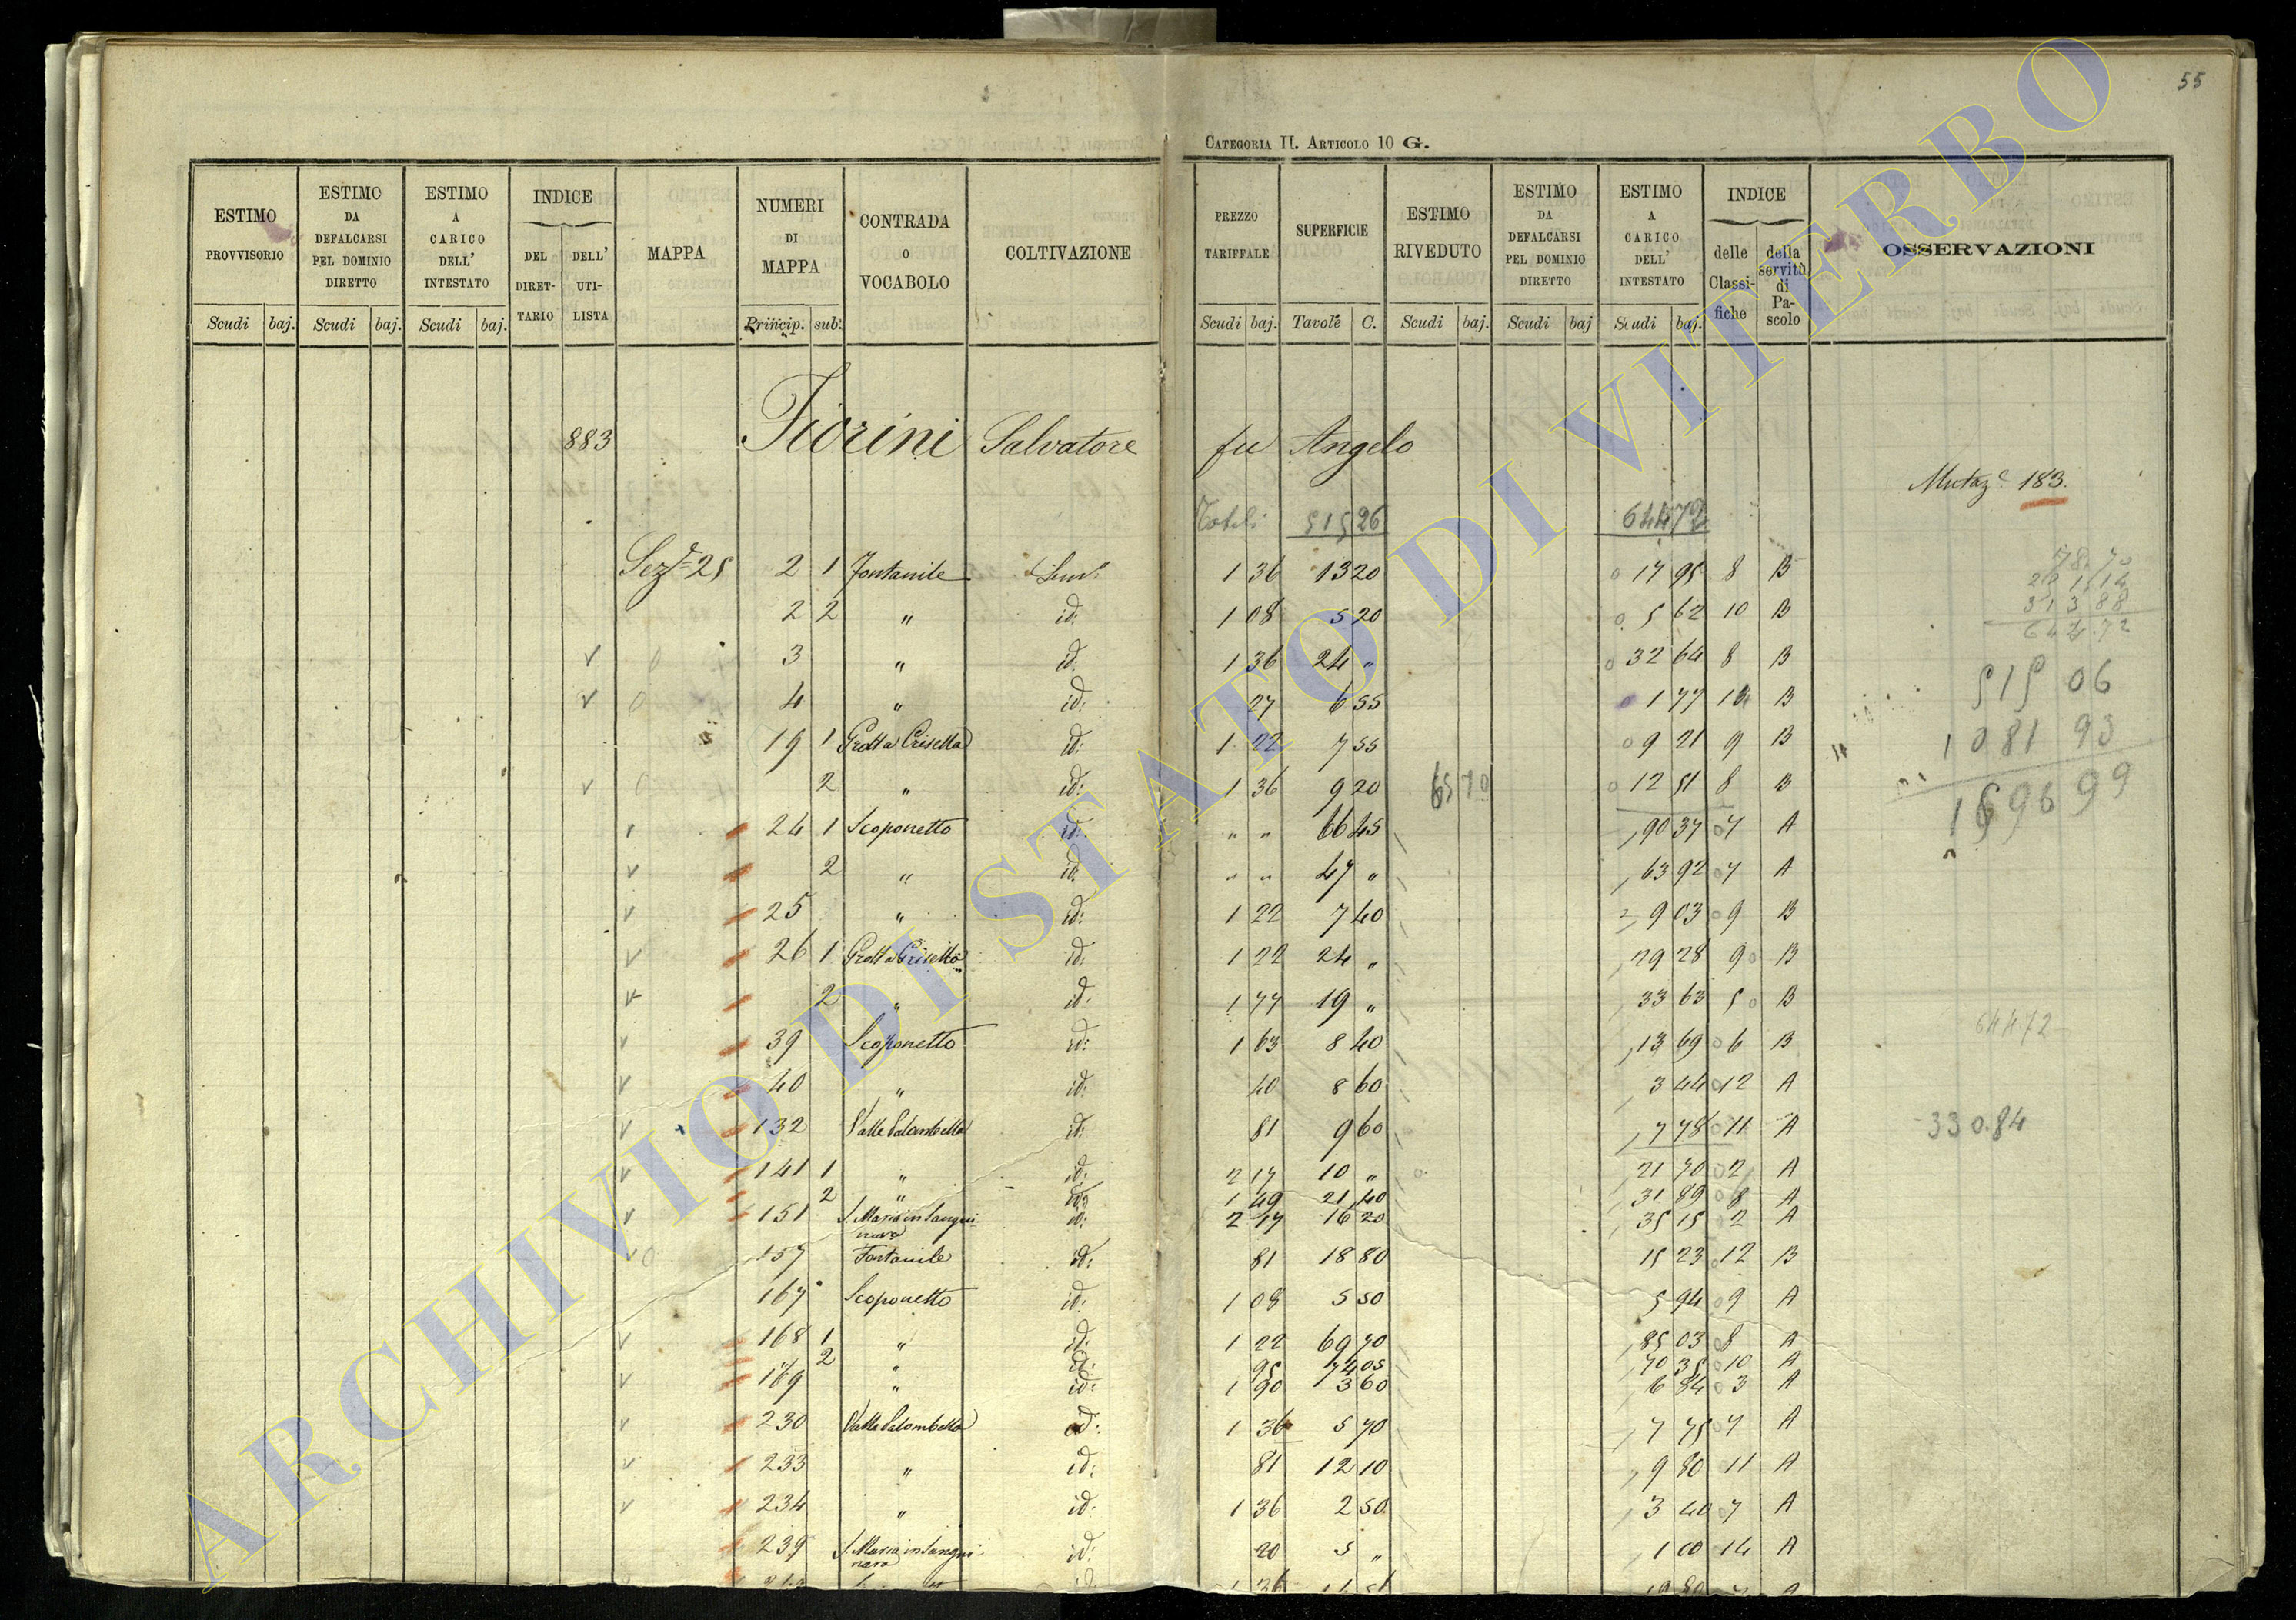 55
CATEGORIA II. ARTICOLO 10 G.
ESTIMO PROVVISORIO | ESTIMO DA DEFALCARSI PEL DOMINIO DIRETTO | ESTIMO A CARICO DELL' INTESTATO | INDICE DEL DIRET-TARIO | DELL' UTI-LISTA | MAPPA | NUMERI DI MAPPA | CONTRADA O VOCABOLO | COLTIVAZIONE | PREZZO TARIFFALE | SUPERFICIE | ESTIMO RIVEDUTO | ESTIMO DA DEFALCARSI PEL DOMINIO DIRETTO | ESTIMO A CARICO DELL' INTESTATO | INDICE delle Classi-fiche | della servitù di Pa-scolo | OSSERVAZIONI
Scudi baj. | Scudi baj. | Scudi baj. | Princip. sub: | Scudi baj. | Tavole C. | Scudi baj. | Scudi baj | Scudi baj.
883 Fiorini Salvatore fu Angelo
Mutaz.e 183.
Totali 515 26 644 72
Sez.e 25 2 1 Fontanile 1 36 13 20 17 95 8 B
2 2 " id: 1 08 5 20 5 62 10 B
3 " id: 1 36 24 " 32 64 8 B
4 " id: 27 6 55 1 77 14 B
19 1 Grotta Crisella id: 1 22 7 55 9 21 9 B
2 " id: 1 36 9 20 65 70 12 51 8 B
24 1 Scoponetto id: " " 66 45 90 37 7 A
2 " id: " " 47 " 63 92 7 A
25 " id: 1 22 7 40 9 03 9 B
26 1 Grotta Crisella id: 1 22 24 " 29 28 9 B
2 " id: 1 77 19 " 33 63 5 B
39 Scoponetto id: 1 63 8 40 13 69 6 B
40 " id: 40 8 60 3 44 12 A
132 Valle Palombella id: 81 9 60 7 78 11 A
141 1 " id: 2 17 10 " 21 70 2 A
2 " id: 1 49 21 40 31 89 8 A
151 S. Maria in Sangui-nara id: 2 17 16 20 35 15 2 A
157 Fontanile id: 81 18 80 15 23 12 B
167 Scoponetto id: 1 08 5 50 5 94 9 A
168 1 " id: 1 22 69 70 85 03 8 A
2 " id: 95 74 05 70 35 10 A
169 " id: 1 90 3 60 6 84 3 A
230 Valle Palombella id: 1 36 5 70 7 75 7 A
233 " id: 81 12 10 9 80 11 A
234 " id: 1 36 2 50 3 40 7 A
239 S. Maria in Sangui-nara id: 20 5 " 1 00 14 A
78.70
313 88
644.72
515 06
1081 93
64472
330.84
ARCHIVIO DI STATO DI VITERBO